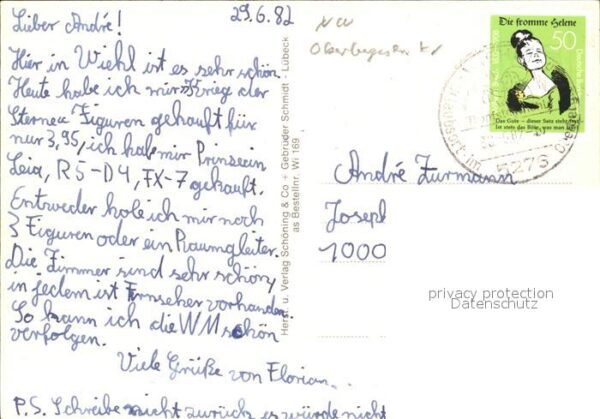 29.6.82
Lieber André!
Hier in Wiehl ist es sehr schön.
Heute habe ich mir "Krieg der
Sterne" Figuren gekauft für
nur 3,95, ich hab mir Prinzessin
Leia, R5-D4, FX-7 gekauft.
Entweder hole ich mir noch
3 Figuren oder ein Raumgleiter.
Die Zimmer sind sehr schön,
in jedem ist Fernseher vorhanden.
So kann ich die WM schön
verfolgen.
Viele Grüße von Florian.
P.S. Schreibe nicht zurück es würde nicht
Herst. u. Verlag Schöning & Co + Gebrüder Schmidt - Lübeck
as Bestellnr. Wi 169
NW
Die fromme Helene
50
Das Gute – dieser Satz steht fest –
Ist stets das Böse, was man läßt
5276
André Zurmann
Joseph
1000
privacy protection
Datenschutz